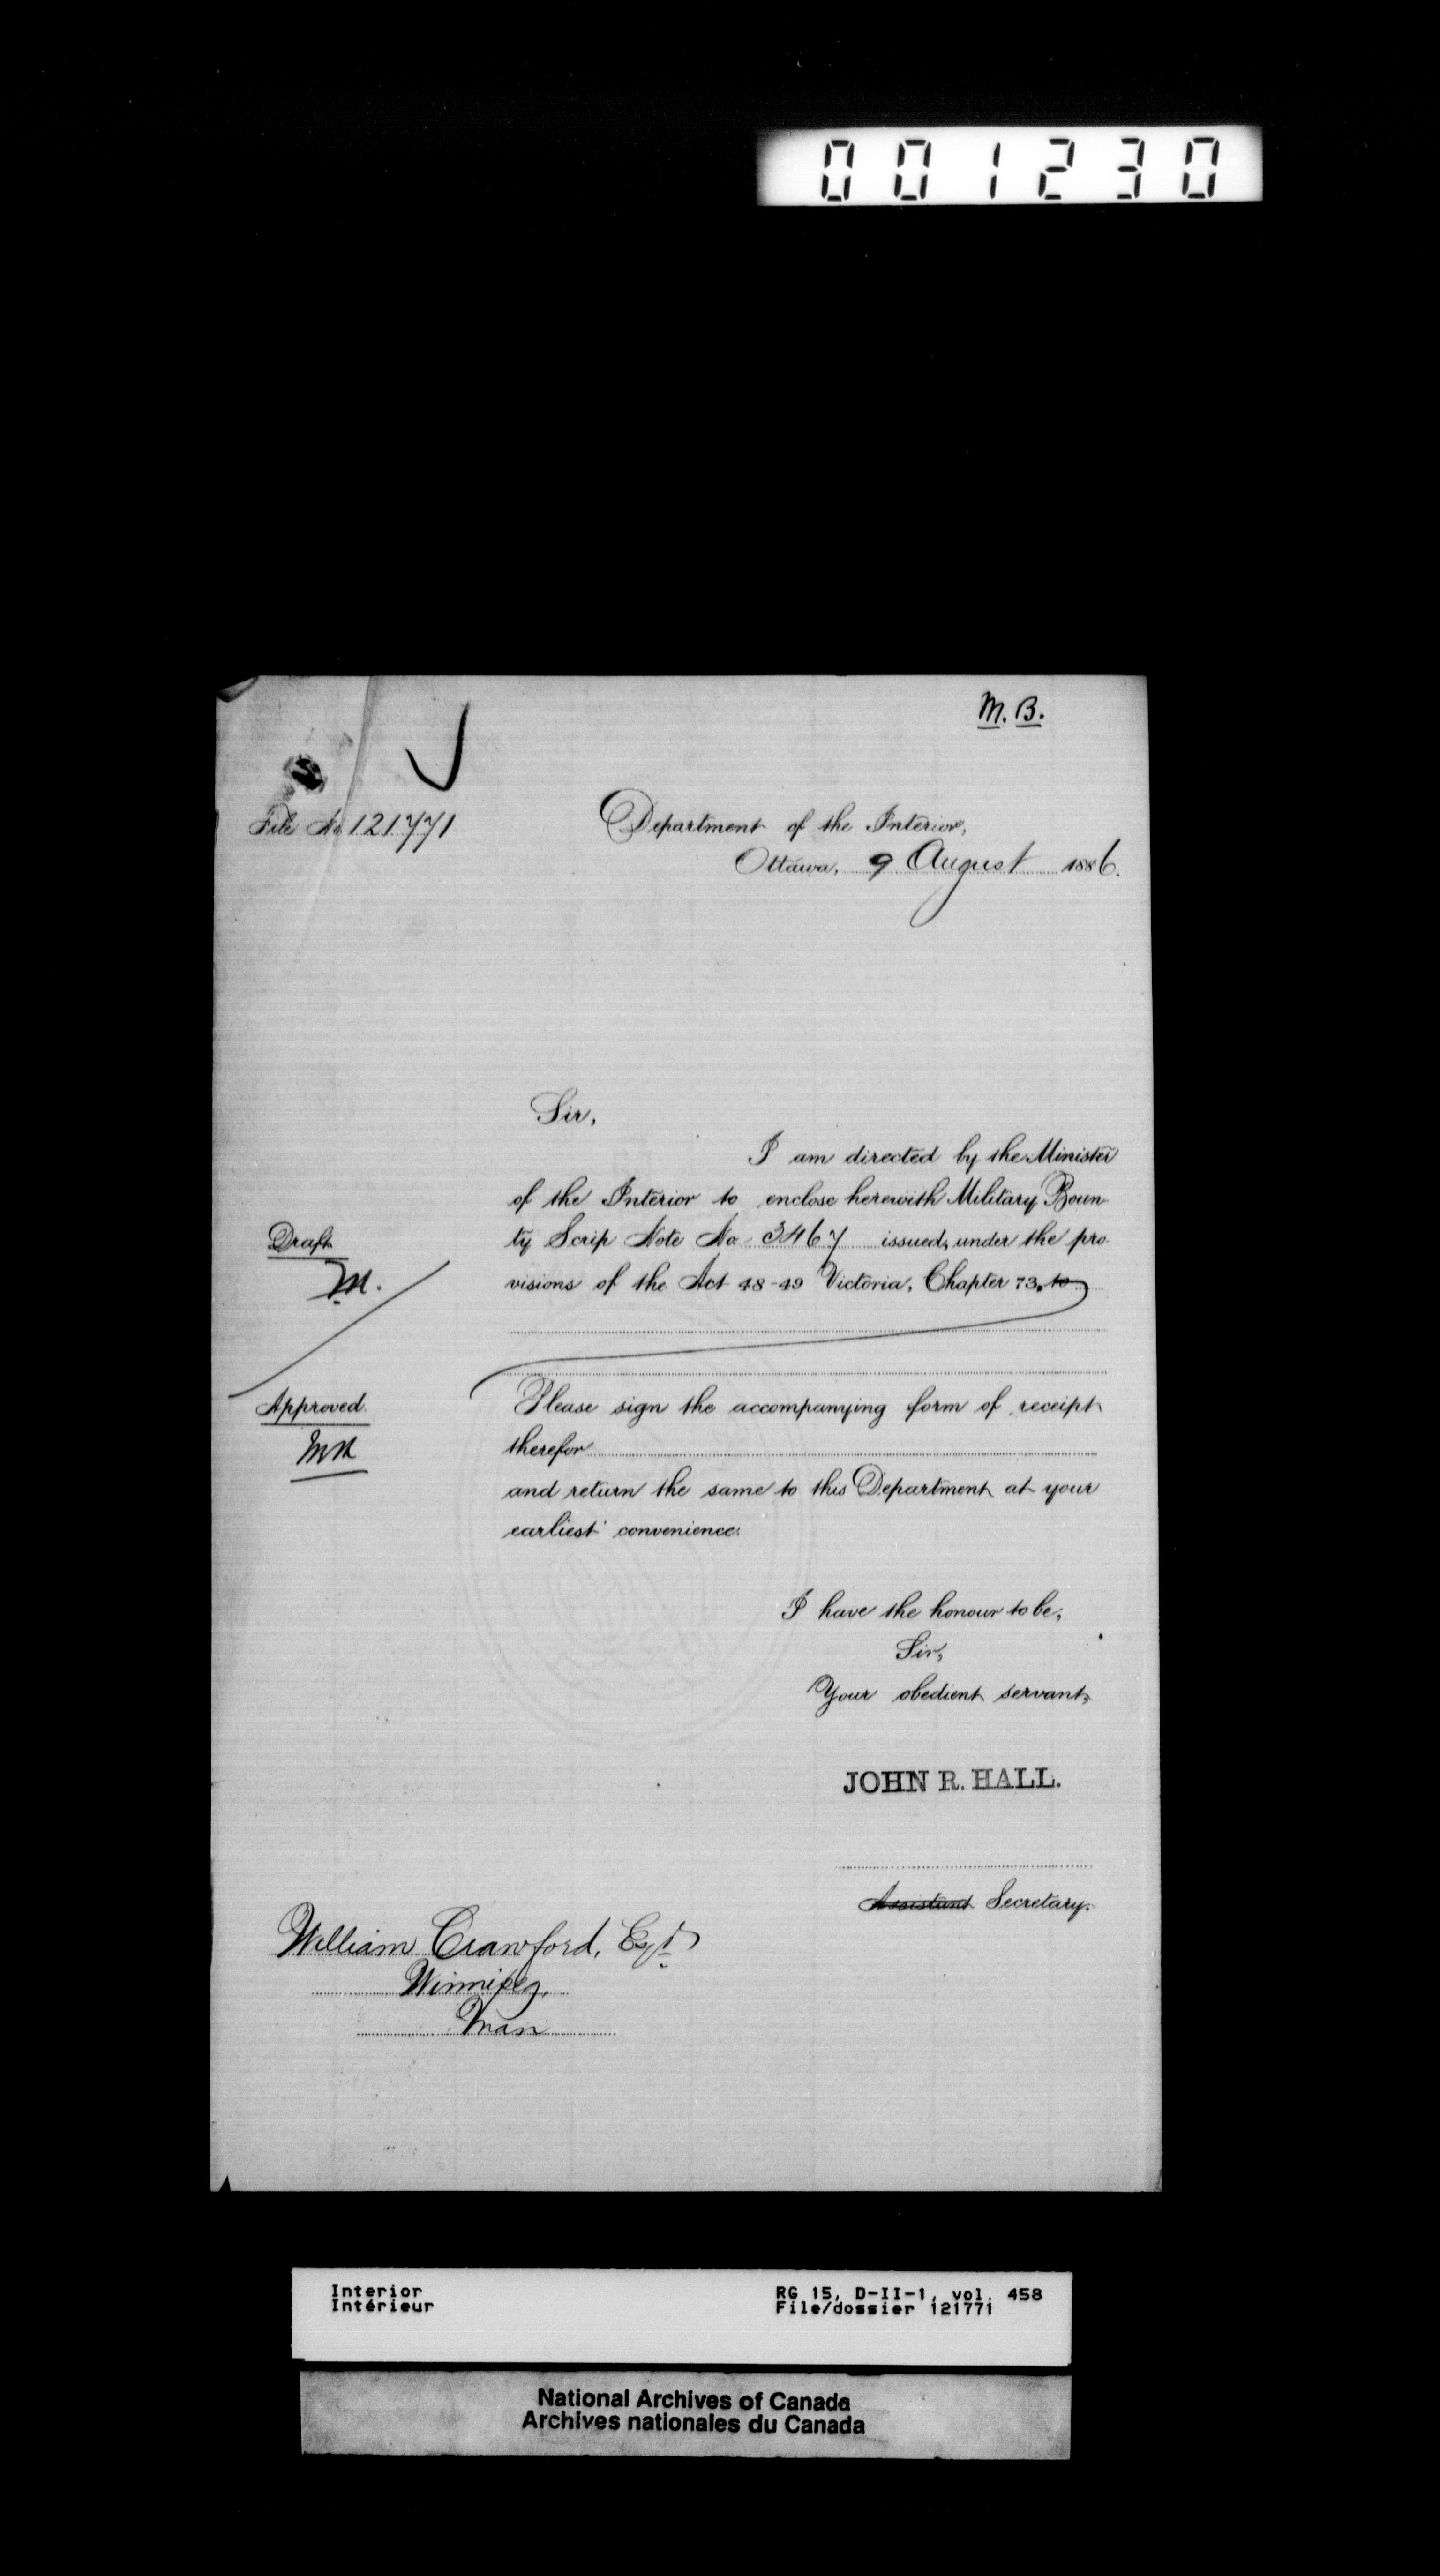 001230
M. B.
File No 121771
Department of the Interior,
Ottawa, 9 August 1886.
Sir,
I am directed by the Minister
of the Interior to enclose herewith Military Boun-
ty Scrip Note No 3467 issued, under the pro-
visions of the Act 48-49 Victoria, Chapter 73. to
Draft
M.
Approved.
Please sign the accompanying form of receipt
therefor
and return the same to this Department at your
earliest convenience.
I have the honour to be,
Sir,
Your obedient servant,
JOHN R. HALL.
Assistant Secretary.
William Crawford, Esqr
Winnipeg,
Man
Interior
Intérieur
RG 15, D-II-1, vol. 458
File/dossier 121771
National Archives of Canada
Archives nationales du Canada